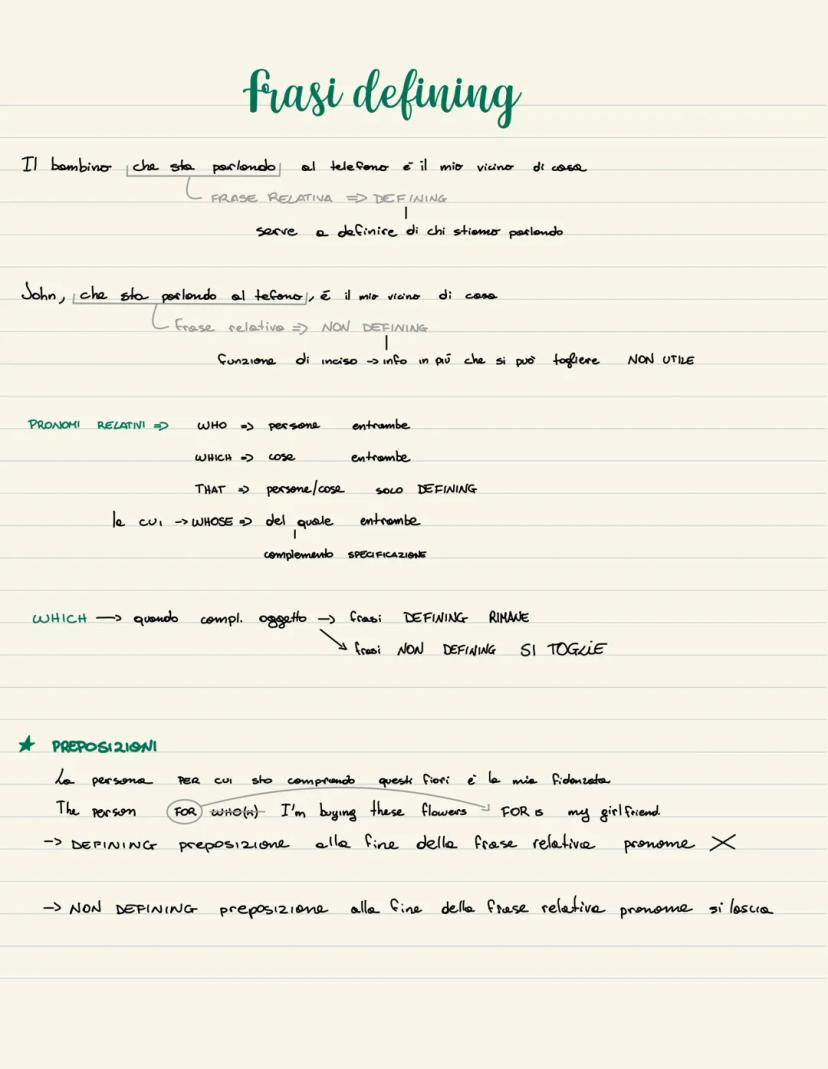 frasi defining
Il bambino che sta parlando al telefono è il mio vicino di casa
FRASE RELATIVA => DEFINING
serve a definire di chi stiamo parlando
John, che sta parlando al tefono, è il mio vicino di casa
frase relativa => NON DEFINING
funzione di inciso -> info in più che si può togliere NON UTILE
PRONOMI RELATIVI => WHO => persone entrambe
WHICH => cose entrambe
THAT => persone/cose SOLO DEFINING
la cui -> WHOSE => del quale entrambe
complemento SPECIFICAZIONE
WHICH -> quando compl. oggetto -> frasi DEFINING RIMANE
frasi NON DEFINING SI TOGLIE
★ PREPOSIZIONI
La persona PER CUI sto comprando questi fiori è la mia fidanzata
The person FOR WHO(M) I'm buying these flowers FOR is my girlfriend.
-> DEFINING preposizione alla fine della frase relativa pronome X
-> NON DEFINING preposizione alla fine della frase relativa pronome si lascia